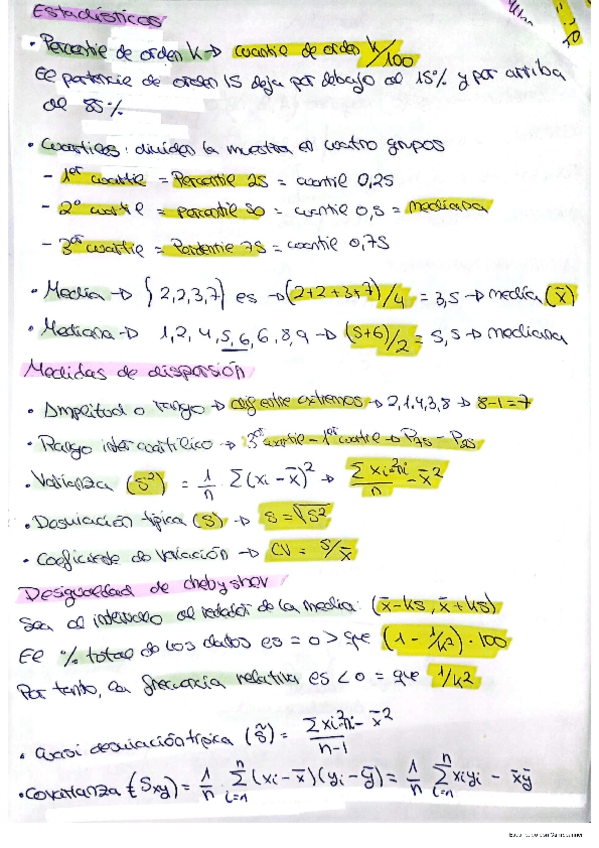 Estadísticos
• Percentil de orden K → cuantil de orden K/100
El percentil de orden 15 deja por debajo al 15% y por arriba
al 85%
• Cuartiles: dividen la muestra en cuatro grupos
- 1er cuartil = Percentil 25 = cuantil 0,25
- 2º cuartil = percentil 50 = cuantil 0,5 = mediana
- 3er cuartil = Percentil 75 = cuantil 0,75
• Media → {2,2,3,7} es → (2+2+3+7)/4 = 3,5 → media (x̄)
• Mediana → 1,2,4,5,6,6,8,9 → (5+6)/2 = 5,5 → mediana
Medidas de dispersión
• Amplitud o rango → dif entre extremos → 2,1,4,3,8 → 8-1=7
• Rango intercuartílico → 3er cuartil - 1er cuartil → P75 - P25
• Varianza (S²) = 1/n · Σ(xi - x̄)² → Σxi²ni/n - x̄²
• Desviación típica (S) → S = √S²
• Coeficiente de variación → CV = S/x̄
Desigualdad de chebyshev
Sea el intervalo al rededor de la media: (x̄-ks, x̄+ks)
El % total de los datos es = o > que (1 - 1/k²)·100
Por tanto, la frecuencia relativa es < o = que 1/k²
• Cuasi desviación típica (s̃) = Σxi²ni - x̄² / n-1
• Covarianza (Sxy) = 1/n · Σ(xi - x̄)(yi - ȳ) = 1/n Σ xiyi - x̄ȳ